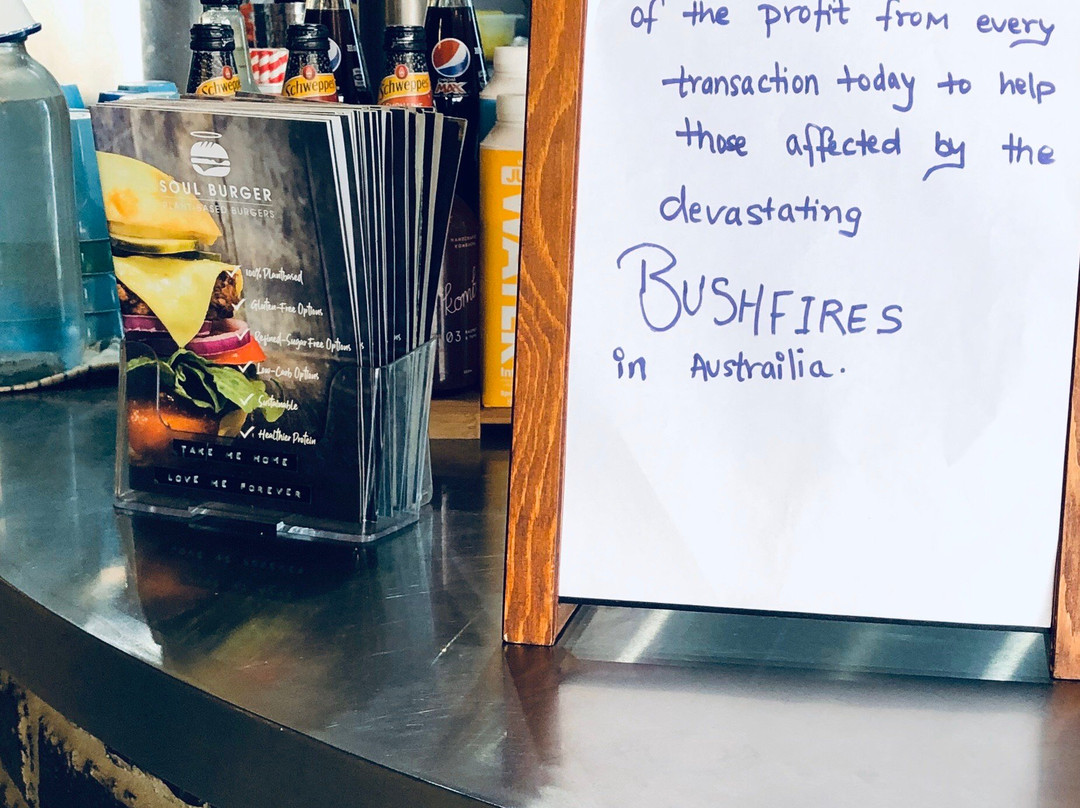 of the profit from every
transaction today to help
those affected by the
devastating
BUSHFIRES
in Austrailia.
SOUL BURGER
PLANT-BASED BURGERS
100% Plantbased
Gluten-Free Options
Refined-Sugar Free Options
Low-Carb Options
Sustainable
Healthier Protein
TAKE ME HOME
LOVE ME FOREVER
Schweppes
Schweppes
Schweppes
MAX
WATER
03